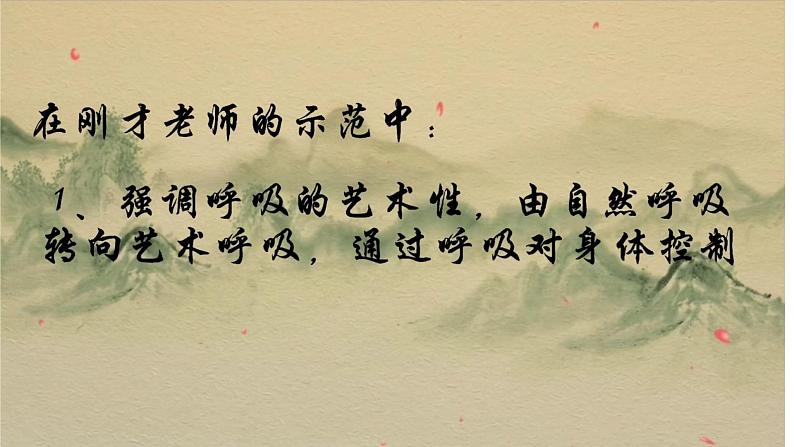 在刚才老师的示范中：
1、强调呼吸的艺术性，由自然呼吸
转向艺术呼吸，通过呼吸对身体控制